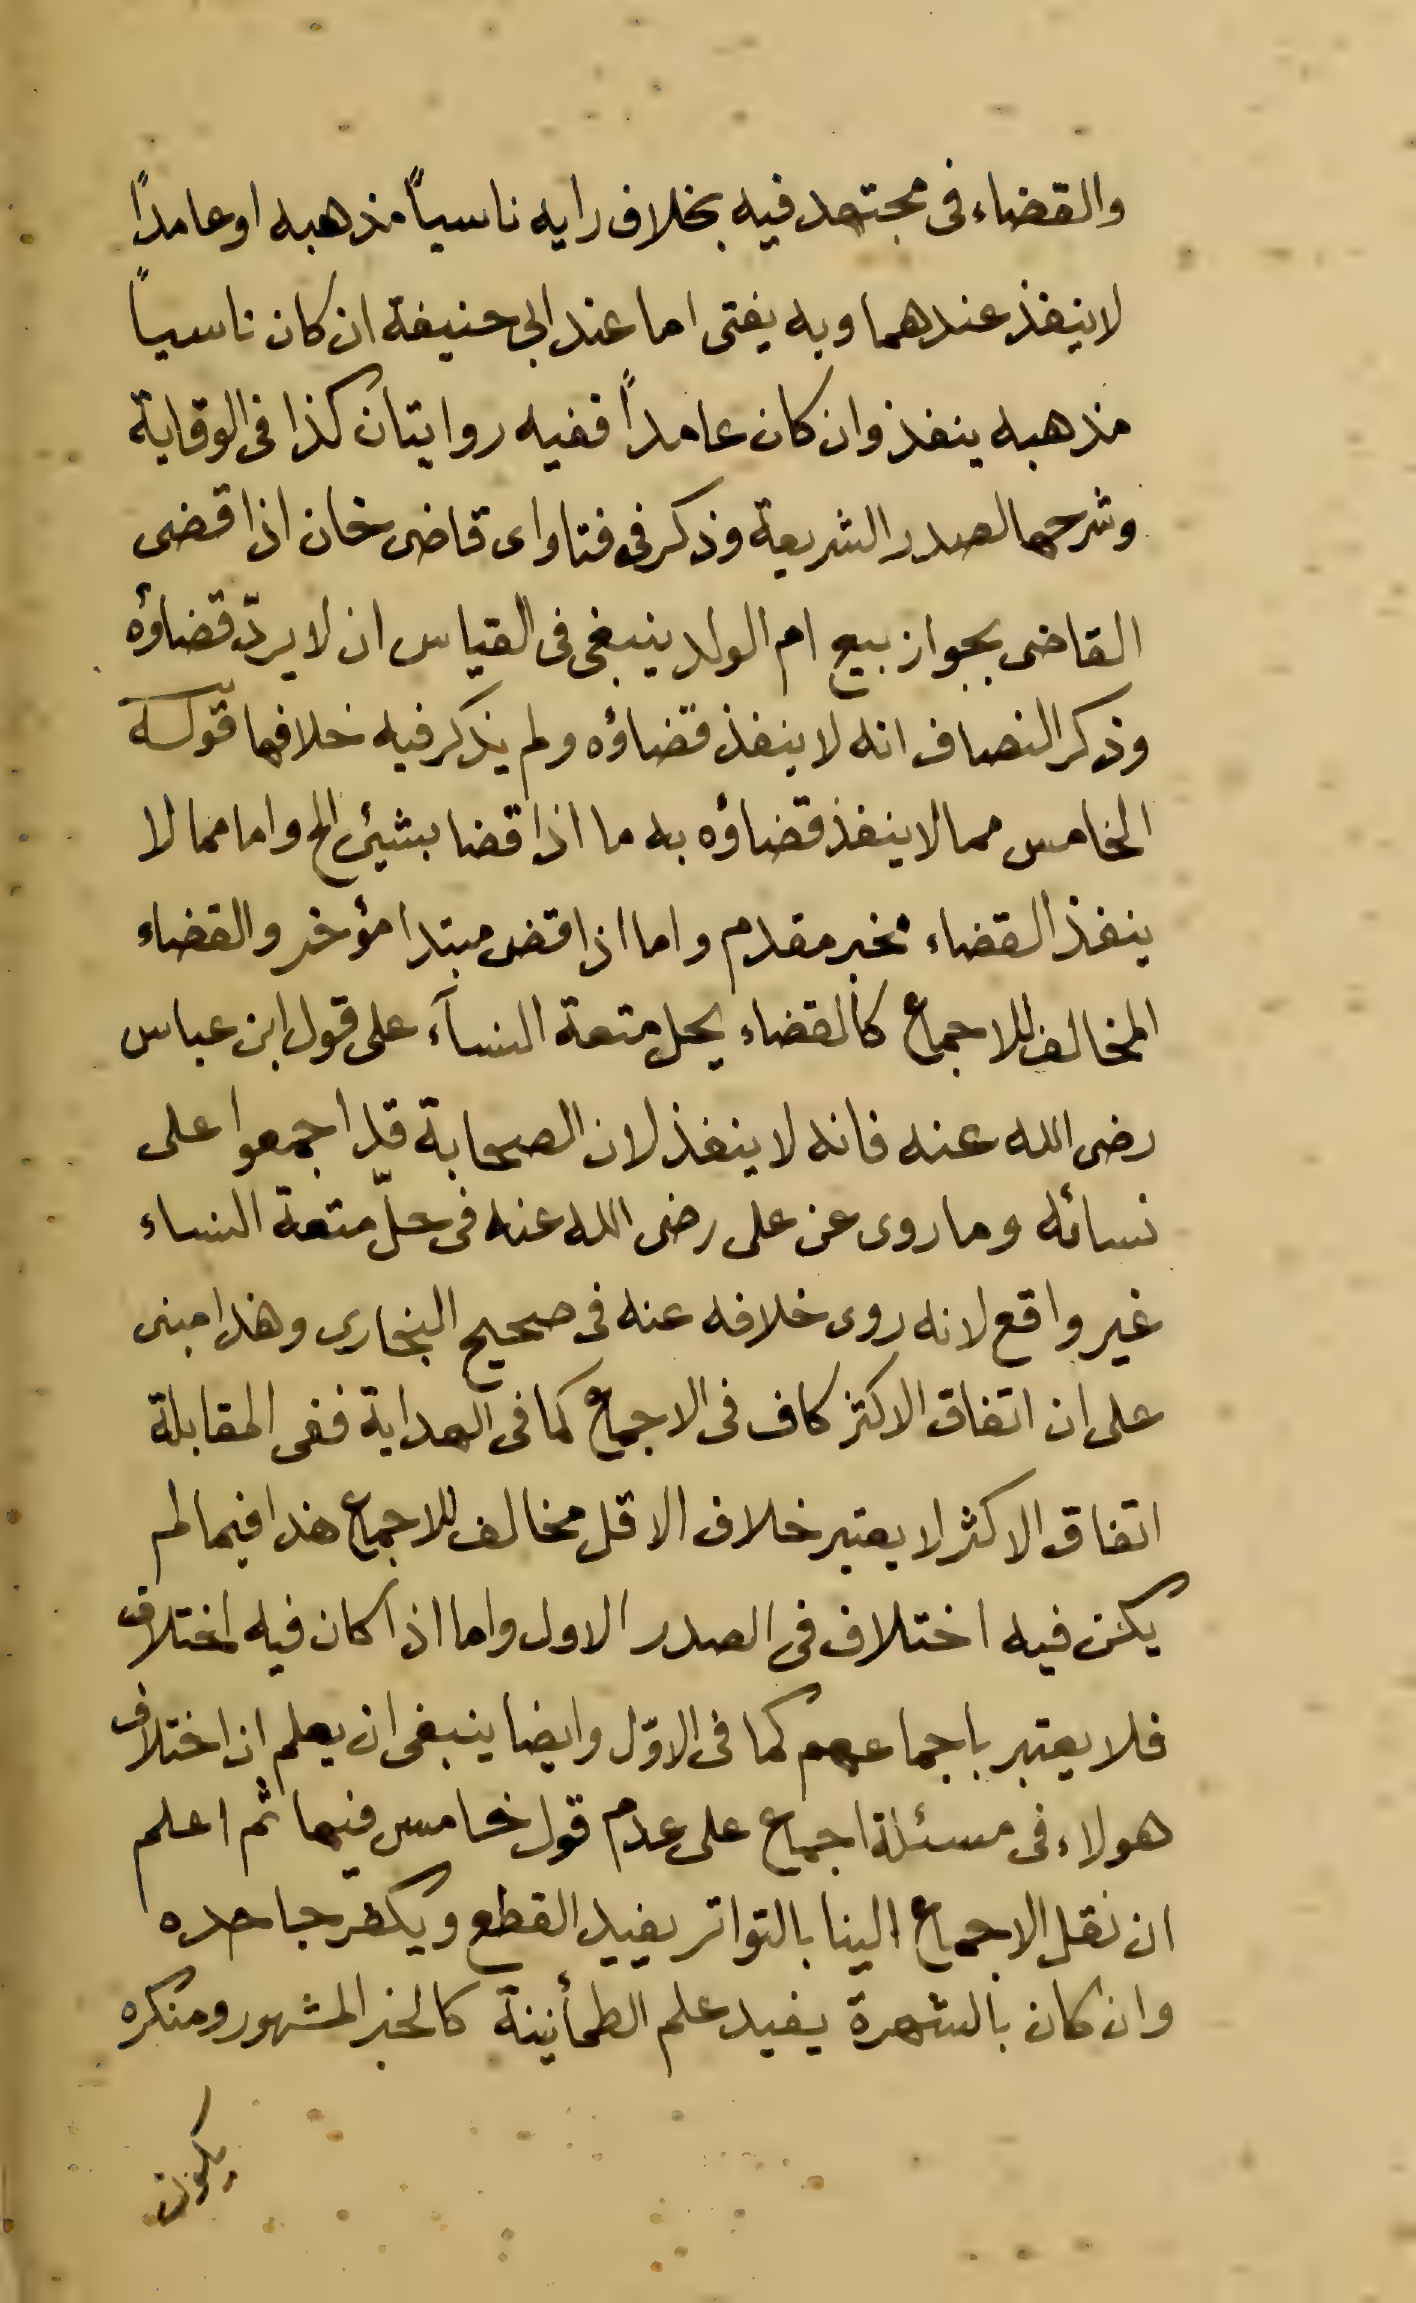 والقضاء فى مجتهد فيه بخلاف رايه ناسياً مذهبه او عامداً
لا ينفذ عندهما وبه يفتى اما عند ابى حنيفة ان كان ناسياً
مذهبه ينفذ وان كان عامداً ففيه روايتان كذا فى الوقاية
وشرحها لصدر الشريعة وذكر فى فتاواى قاضى خان اذا قضى
القاضى بجواز بيع ام الولد ينبغى فى القياس ان لا يردّ قضاؤه
وذكر الخصاف انه لا ينفذ قضاؤه ولم يذكر فيه خلافهما قوله
الخامس مما لا ينفذ قضاؤه به ما اذا قضا بشيئ الخ واما مما لا
ينفذ القضاء فخبر مقدم واما اذا قضى مبتدا مؤخر والقضاء
المخالف للاجماع كالقضاء بحل متعة النسآء على قول ابن عباس
رضى الله عنه فانه لا ينفذ لان الصحابة قد اجمعوا على
نسائه وما روى عن على رضى الله عنه فى حلّ متعة النساء
غير واقع لانه روى خلافه عنه فى صحيح البخارى وهذا مبنى
على ان اتفاق الاكثر كاف فى الاجماع كما فى الهداية ففى المقابلة
اتفاق الاكثر لا يعتبر خلاف الاقل مخالف للاجماع هذا فيما لم
يكن فيه اختلاف فى الصدر الاول واما اذا كان فيه اختلاف
فلا يعتبر باجماعهم كما فى الاوّل وايضا ينبغى ان يعلم ان اختلاف
هولاء فى مسئلة اجماع على عدم قول خامس فيها ثم اعلم
ان نقل الاجماع الينا بالتواتر يفيد القطع ويكفر جاحده
وان كان بالشهرة يفيد علم الطمأنينة كالخبر المشهور ومنكره
يكون